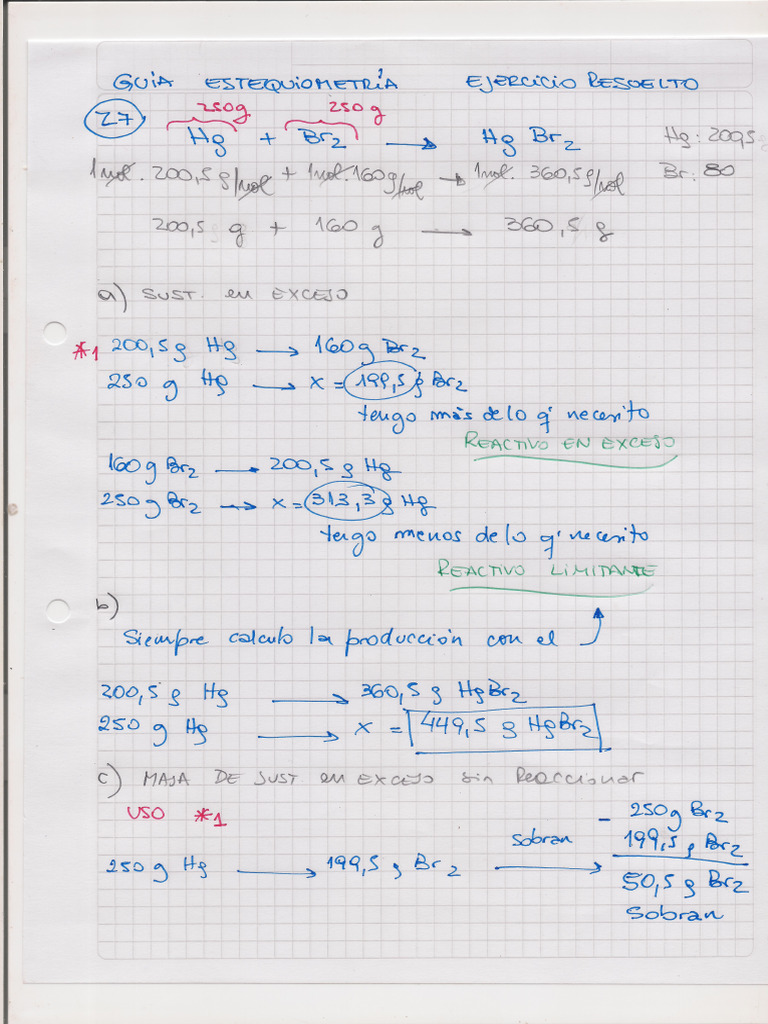 GUÍA ESTEQUIOMETRÍA EJERCICIO RESUELTO
250g 250g
27 Hg + Br2 → HgBr2 Hg: 200,5 g
1 mol. 200,5 g/mol + 1 mol. 160 g/mol → 1 mol. 360,5 g/mol Br: 80
200,5 g + 160 g → 360,5 g
a) SUST. en EXCESO
*1 200,5 g Hg → 160 g Br2
250 g Hg → x = 199,5 g Br2
tengo más de lo q' necesito
REACTIVO EN EXCESO
160 g Br2 → 200,5 g Hg
250 g Br2 → x = 313,3 g Hg
tengo menos de lo q' necesito
REACTIVO LIMITANTE
b)
Siempre calculo la producción con el
200,5 g Hg → 360,5 g HgBr2
250 g Hg → x = 449,5 g HgBr2
c) MASA DE SUST en EXCESO sin Reaccionar
USO *1
- 250 g Br2
199,5 g Br2
250 g Hg → 199,5 g Br2 sobran →
50,5 g Br2
sobran